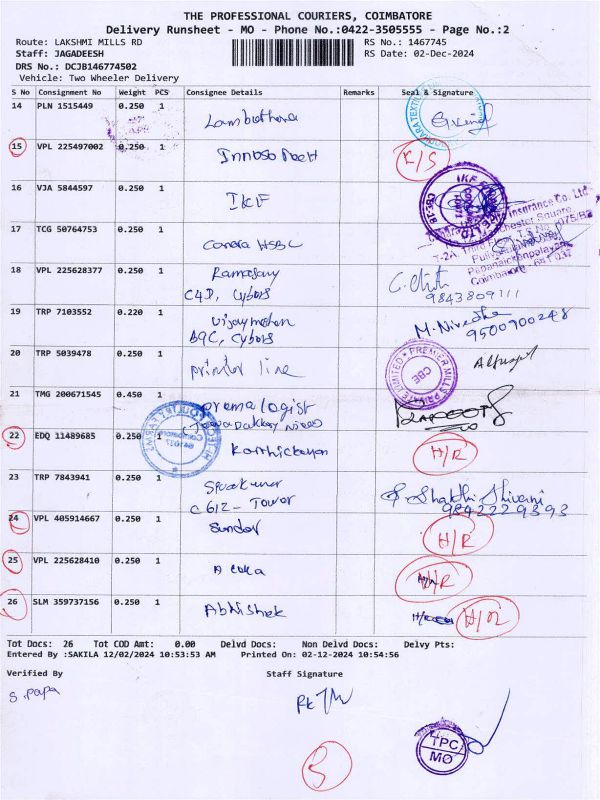 THE PROFESSIONAL COURIERS, COIMBATORE
Delivery Runsheet - MO - Phone No.:0422-3505555 - Page No.:2
Route: LAKSHMI MILLS RD RS No.: 1467745
Staff: JAGADEESH RS Date: 02-Dec-2024
DRS No.: DCJB146774502
Vehicle: Two Wheeler Delivery
S No Consignment No Weight PCS Consignee Details Remarks Seal & Signature
14 PLN 1515449 0.250 1
15 VPL 225497002 0.250 1 R/S
16 VJA 5844597 0.250 1 IKF
17 TCG 50764753 0.250 1 Canara HSBC
Insurance Co. Ltd.
Coimbatore
18 VPL 225628377 0.250 1 Ramasamy
C4D, Cybors 9843809111
19 TRP 7103552 0.220 1 Vijaymohan M. Nivedha
Cybors 9500900248
20 TRP 5039478 0.250 1 printer line
PREMIER MILLS PRIVATE LIMITED
CBE
21 TMG 200671545 0.450 1 prema logist
22 EDQ 11489685 0.250 1 Karthickeyan H/R
23 TRP 7843941 0.250 1 S. Shakthi Shivani
C 612 - Tower 9842229393
24 VPL 405914667 0.250 1 Sundar H/R
25 VPL 225628410 0.250 1 H/R
26 SLM 359737156 0.250 1 Abhishek H/R
Tot Docs: 26 Tot COD Amt: 0.00 Delvd Docs: Non Delvd Docs: Delvy Pts:
Entered By :SAKILA 12/02/2024 10:53:53 AM Printed On: 02-12-2024 10:54:56
Verified By Staff Signature
S. Papa
TPC
MO
5